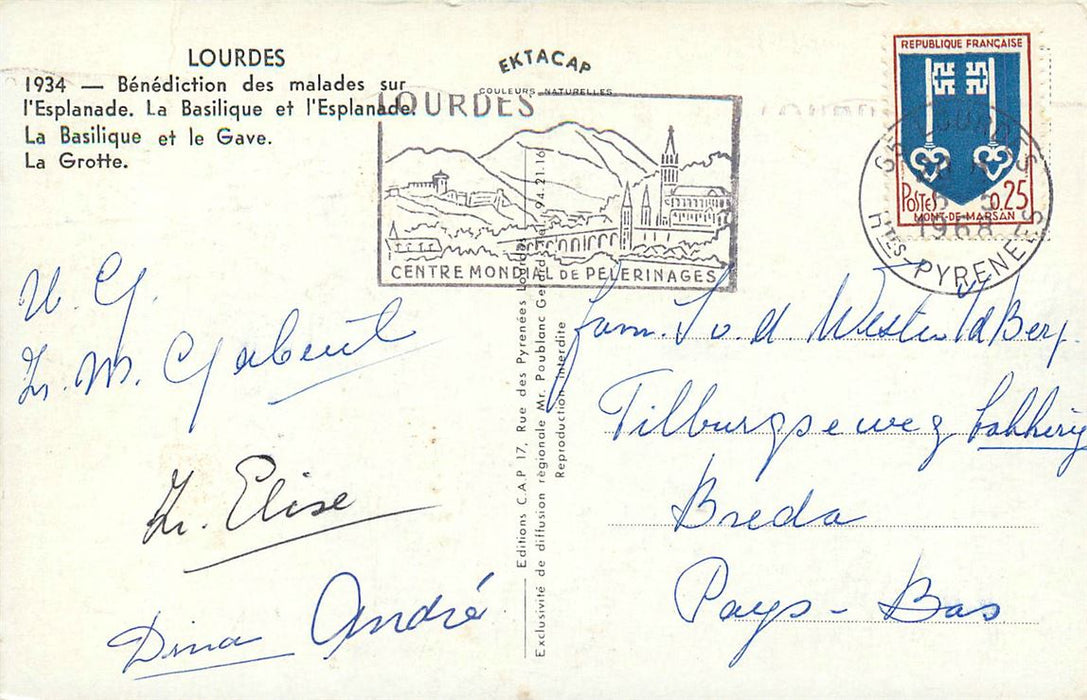 LOURDES
1934 — Bénédiction des malades sur
l'Esplanade. La Basilique et l'Esplanade.
La Basilique et le Gave.
La Grotte.
EKTACAP
COULEURS NATURELLES
LOURDES
CENTRE MONDIAL DE PÈLERINAGES
REPUBLIQUE FRANÇAISE
POSTES 0.25
MONT-DE-MARSAN
LOURDES
1968
HTES-PYRENEES
Editions C.A.P 17, Rue des Pyrenées Lourdes
Exclusivité de diffusion régionale Mr. Poublanc Gerards 94.21.16
Reproduction interdite
Zr. M.
Zr. Elise
Dina André
fam. v. d. Berg.
Tilburgseweg
Breda
Pays-Bas